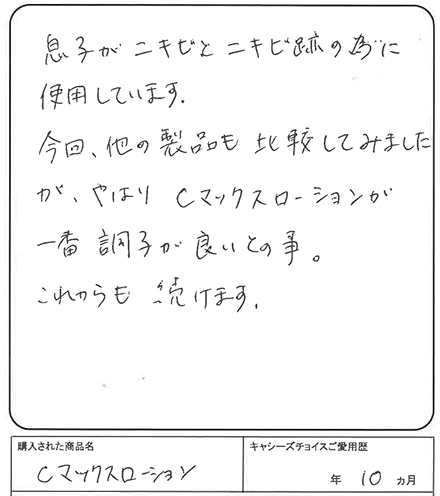 息子がニキビとニキビ跡の為に
使用しています.
今回、他の製品も比較してみました
が、やはりCマックスローションが
一番調子が良いとの事。
これからも続けます.
購入された商品名
Cマックスローション
キャシーズチョイスご愛用歴
年 10 ヵ月